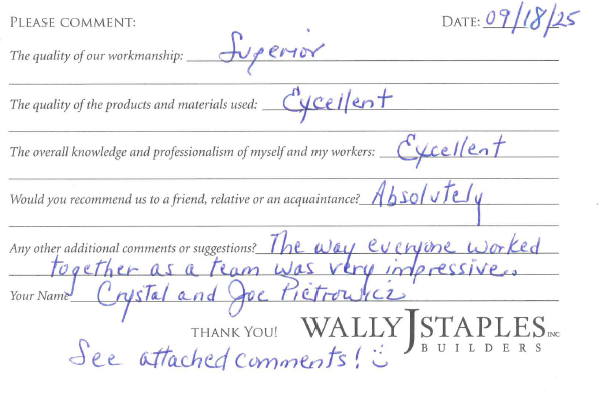 PLEASE COMMENT: DATE: 09/18/25
The quality of our workmanship: Superior
The quality of the products and materials used: Excellent
The overall knowledge and professionalism of myself and my workers: Excellent
Would you recommend us to a friend, relative or an acquaintance? Absolutely
Any other additional comments or suggestions? The way everyone worked
together as a team was very impressive.
Your Name Crystal and Joe Pietrowicz
THANK YOU! WALLY J STAPLES INC
BUILDERS
See attached comments! :)